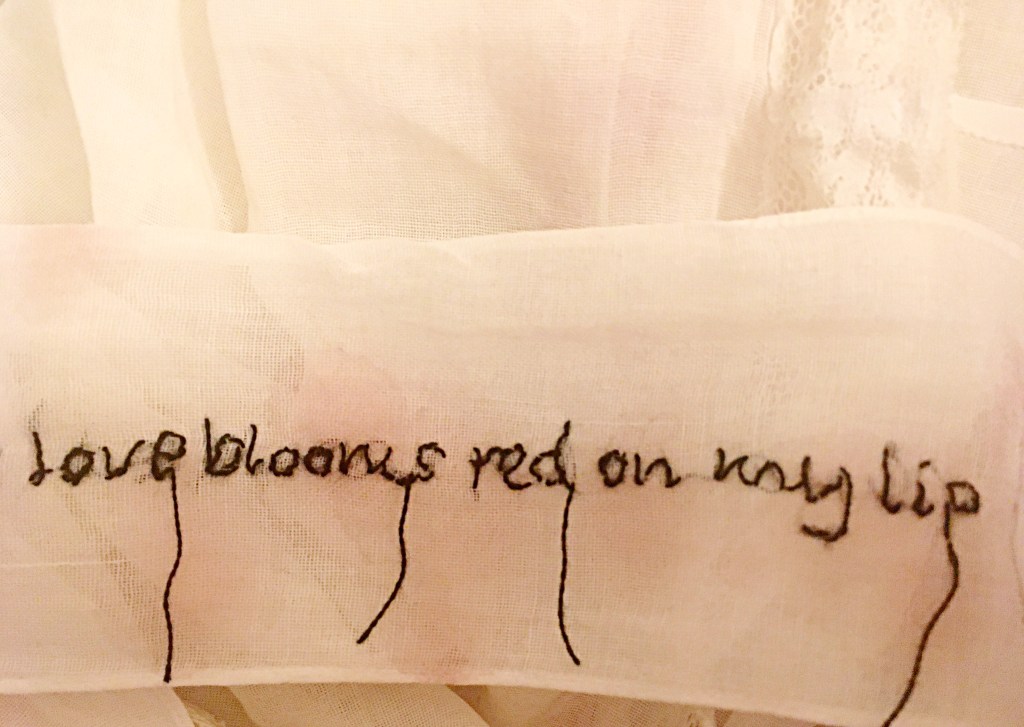 love blooms red on my lip